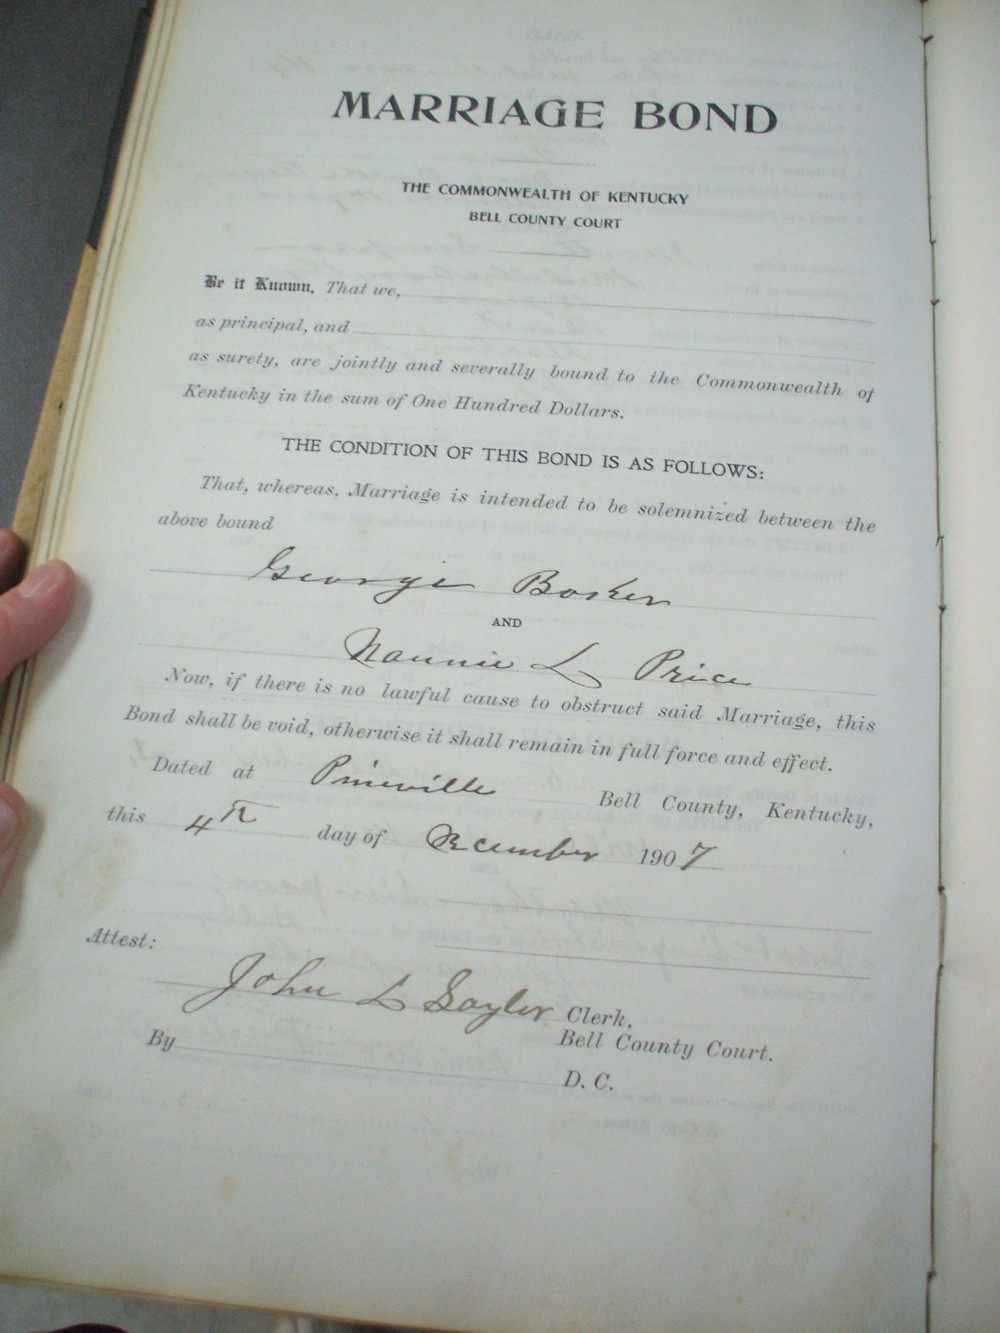 MARRIAGE BOND
THE COMMONWEALTH OF KENTUCKY
BELL COUNTY COURT
Be it Known, That we,
as principal, and
as surety, are jointly and severally bound to the Commonwealth of
Kentucky in the sum of One Hundred Dollars.
THE CONDITION OF THIS BOND IS AS FOLLOWS:
That, whereas, Marriage is intended to be solemnized between the
above bound
George
AND
Nannie L Price
Now, if there is no lawful cause to obstruct said Marriage, this
Bond shall be void, otherwise it shall remain in full force and effect.
Dated at Pineville Bell County, Kentucky,
this 4th day of December 1907
Attest:
John L Saylor Clerk,
Bell County Court.
By
D. C.